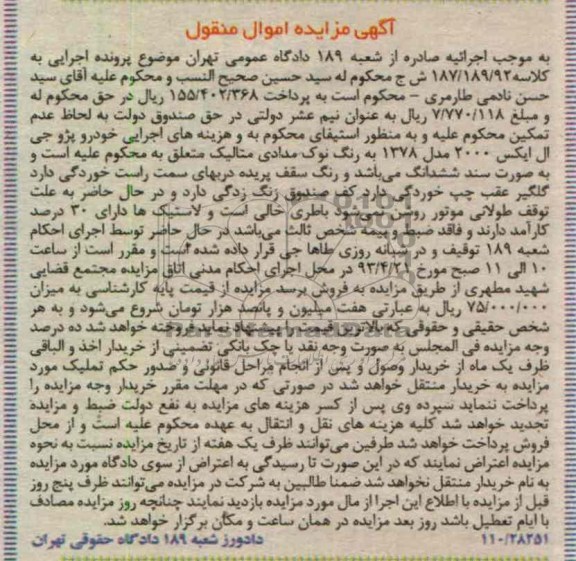 آگهی مزایده اموال منقول
به موجب اجرائیه صادره از شعبه ۱۸۹ دادگاه عمومی تهران موضوع پرونده اجرایی به
کلاسه ۱۸۷/۱۸۹/۹۲ ش ج محکوم له سید حسین صحیح النسب و محکوم علیه آقای سید
حسن نادمی طارمری – محکوم است به پرداخت ۱۵۵/۴۰۲/۳۶۸ ریال در حق محکوم له
و مبلغ ۷/۷۷۰/۱۱۸ ریال به عنوان نیم عشر دولتی در حق صندوق دولت به لحاظ عدم
تمکین محکوم علیه و به منظور استیفای محکوم به و هزینه های اجرایی خودرو پژو جی
ال ایکس ۲۰۰۰ مدل ۱۳۷۸ به رنگ نوک مدادی متالیک متعلق به محکوم علیه است و
به صورت سند ششدانگ می‌باشد و رنگ سقف پریده دربهای سمت راست خوردگی دارد
گلگیر عقب چپ خوردگی دارد کف صندوق زنگ زدگی دارد و در حال حاضر به علت
توقف طولانی موتور روشن نمی‌شود باطری خالی است و لاستیک ها دارای ۳۰ درصد
کارآمد دارند و فاقد ضبط و بیمه شخص ثالث می‌باشد در حال حاضر توسط اجرای احکام
شعبه ۱۸۹ توقیف و در شبانه روزی طاها جی قرار داده شده است و مقرر است از ساعت
۱۰ الی ۱۱ صبح مورخ ۹۳/۴/۲۱ در محل اجرای احکام مدنی اتاق مزایده مجتمع قضایی
شهید مطهری از طریق مزایده به فروش برسد مزایده از قیمت پایه کارشناسی به میزان
۷۵/۰۰۰/۰۰۰ ریال به عبارتی هفت میلیون و پانصد هزار تومان شروع می‌شود و به هر
شخص حقیقی و حقوقی که بالاترین قیمت را پیشنهاد نماید فروخته خواهد شد ده درصد
وجه مزایده فی المجلس به صورت وجه نقد یا چک بانکی تضمینی از خریدار اخذ و الباقی
ظرف یک ماه از خریدار وصول و پس از انجام مراحل قانونی و صدور حکم تملیک مورد
مزایده به خریدار منتقل خواهد شد در صورتی که در مهلت مقرر خریدار وجه مزایده را
پرداخت ننماید سپرده وی پس از کسر هزینه های مزایده به نفع دولت ضبط و مزایده
تجدید خواهد شد کلیه هزینه های نقل و انتقال به عهده محکوم علیه است و از محل
فروش پرداخت خواهد شد طرفین می‌توانند ظرف یک هفته از تاریخ مزایده نسبت به نحوه
مزایده اعتراض نمایند که در این صورت تا رسیدگی به اعتراض از سوی دادگاه مورد مزایده
به نام خریدار منتقل نخواهد شد ضمنا طالبین به شرکت در مزایده می‌توانند ظرف پنج روز
قبل از مزایده با اطلاع این اجرا از مال مورد مزایده بازدید نمایند چنانچه روز مزایده مصادف
با ایام تعطیل باشد روز بعد مزایده در همان ساعت و مکان برگزار خواهد شد.
۱۱۰/۲۸۲۵۱ دادورز شعبه ۱۸۹ دادگاه حقوقی تهران